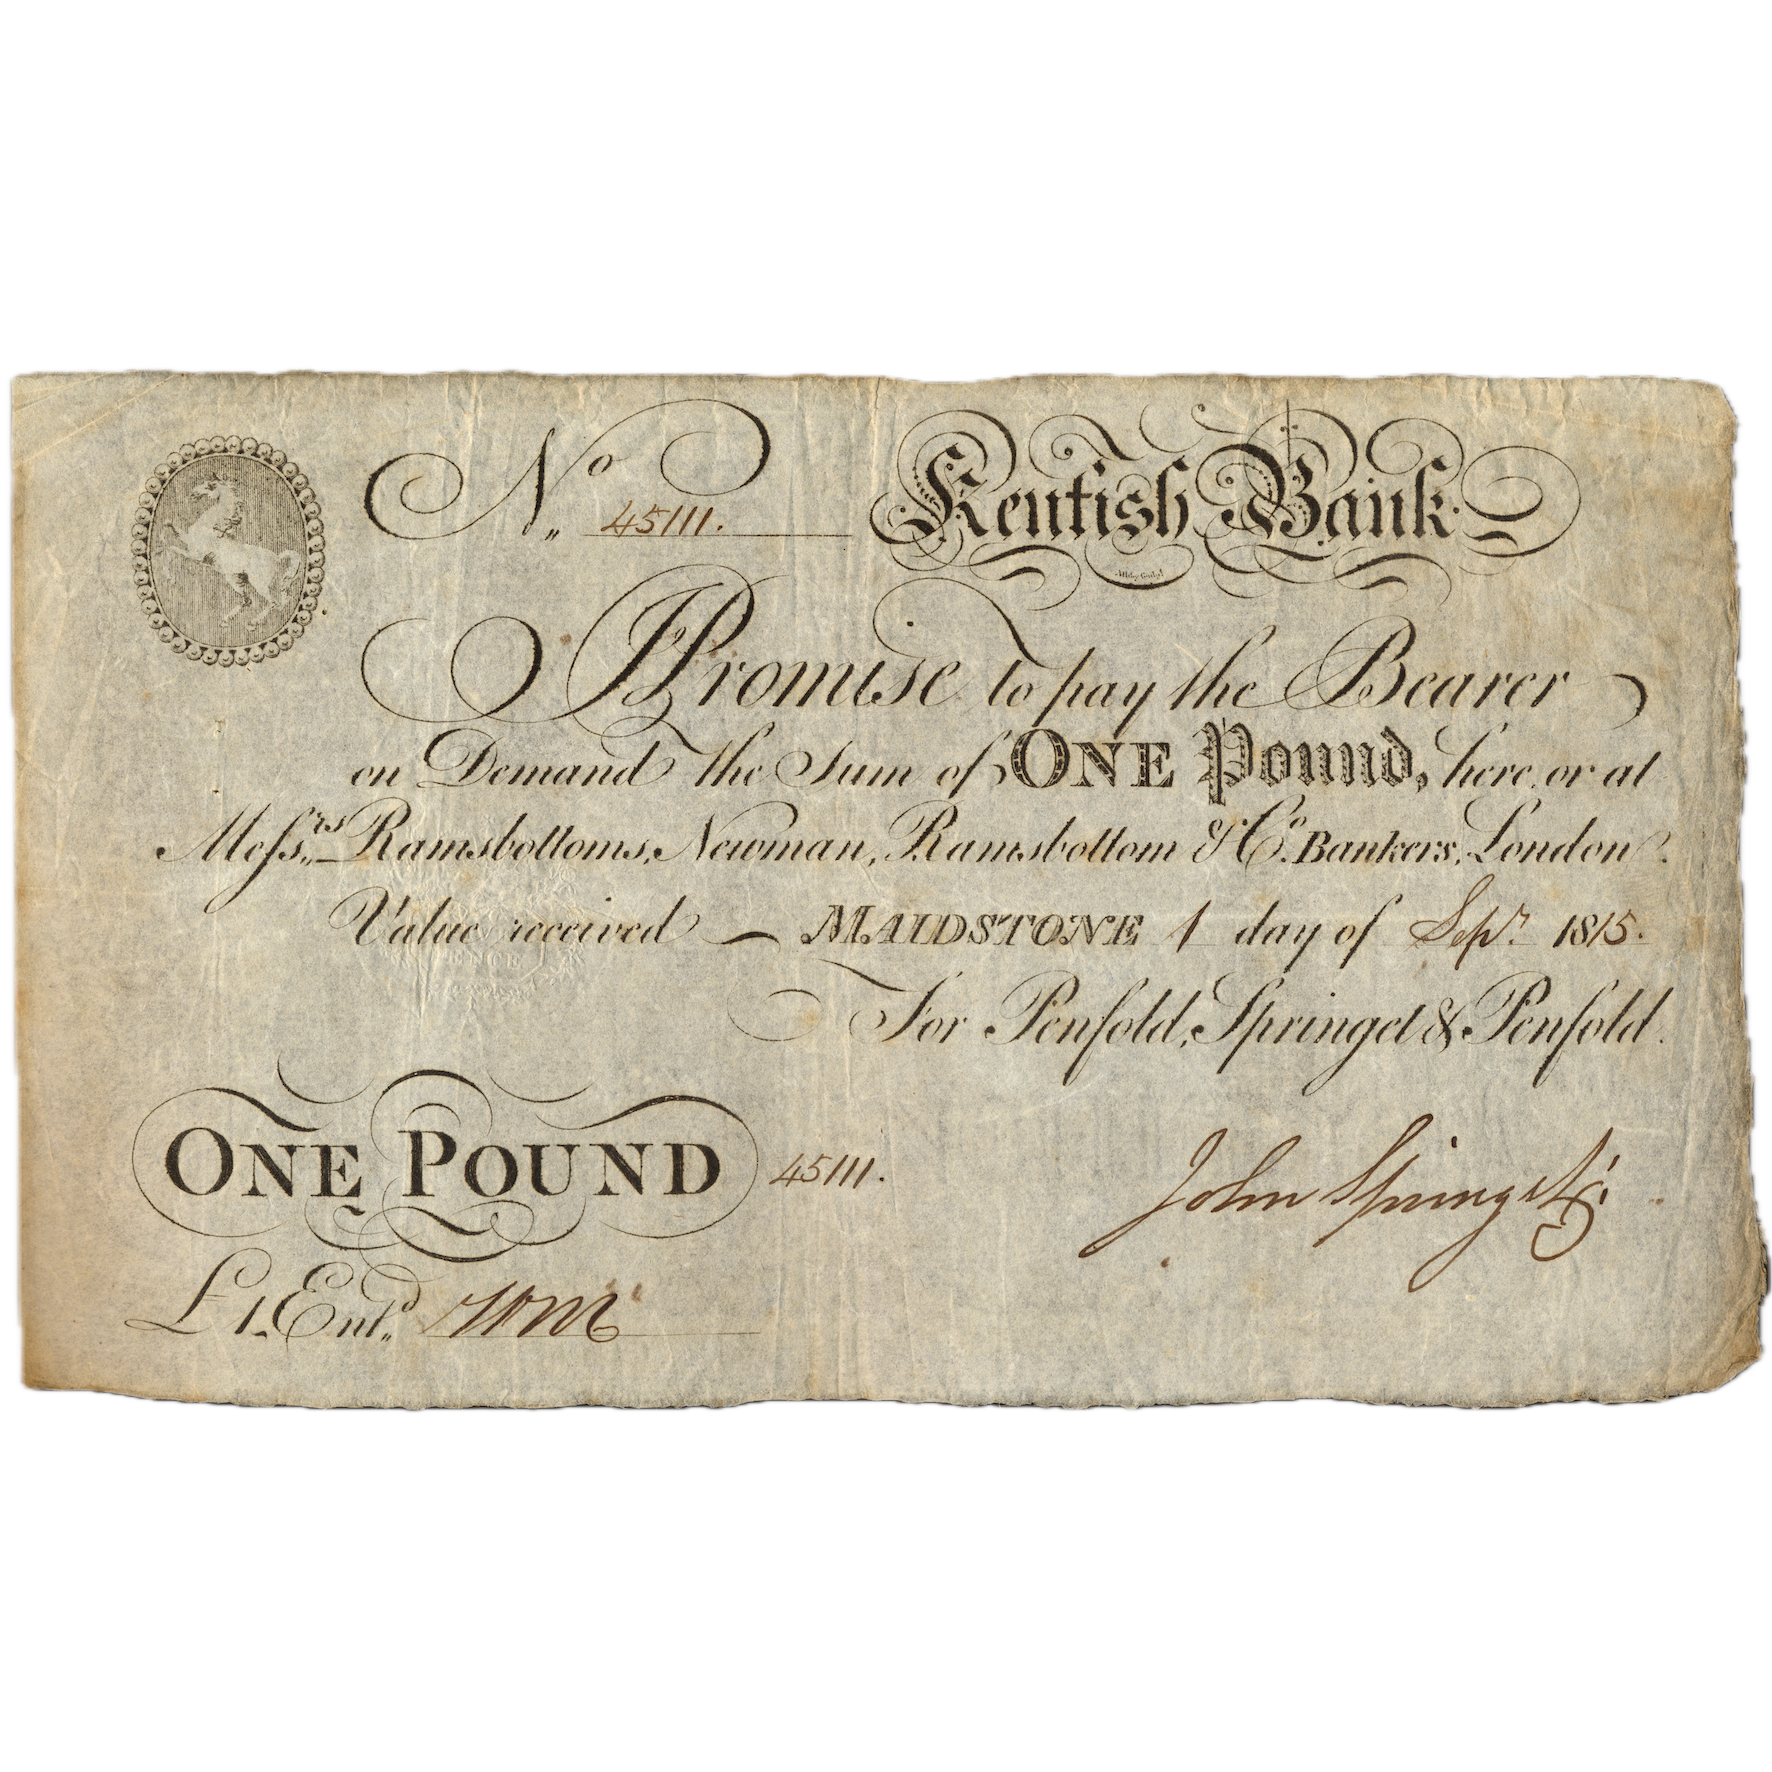 No. 45111. Kentish Bank
I Promise to pay the Bearer
on Demand the Sum of ONE Pound, here or at
Messrs. Ramsbottoms, Newman, Ramsbottom & Co. Bankers, London.
Value received – MAIDSTONE 1 day of Sepr. 1815.
PENCE
For Penfold, Springet & Penfold.
ONE POUND 45111.
John Springett
£1. Entd.